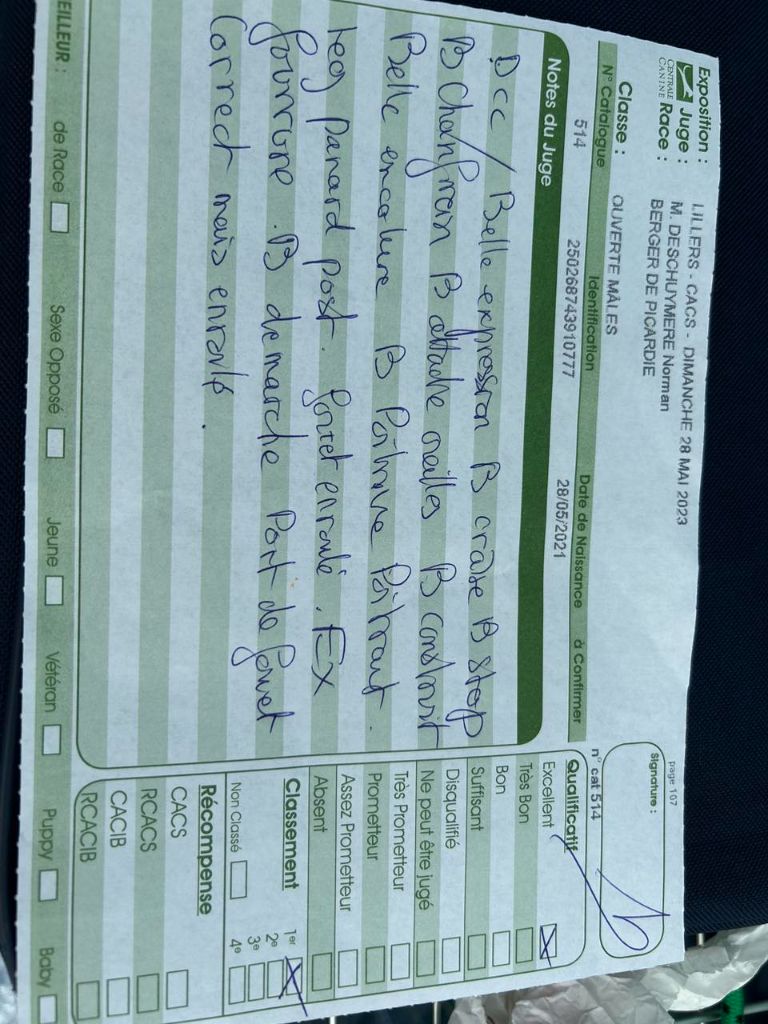 Exposition : LILLERS - CACS - DIMANCHE 28 MAI 2023
Juge : M. DESCHUYMERE Norman
CENTRALE CANINE
Race : BERGER DE PICARDIE
page 107
Signature :
Classe : OUVERTE MÂLES
N° Catalogue Identification Date de Naissance à Confirmer
514 250268743910777 28/05/2021
n° cat 514
Notes du Juge
Dcc / Belle expression B crâne B stop
B chanfrein B attache oreilles B construit
Belle encolure B Poitrine Poitrail.
Leg panard post. fouet enroulé. Ex
fourrure. B démarche Port de fouet
Correct mais enroulé.
Qualificatif
Excellent
Très Bon
Bon
Suffisant
Disqualifié
Ne peut être jugé
Très Prometteur
Prometteur
Assez Prometteur
Absent
Classement
1er
2e
3e
Non Classé 4e
Récompense
CACS
RCACS
CACIB
RCACIB
EILLEUR : de Race Sexe Opposé Jeune Vétéran Puppy Baby